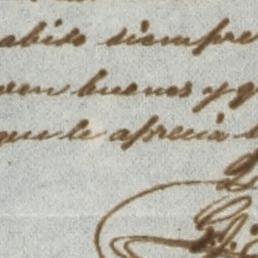 abiso siempre
buenos y q
que le aprecia